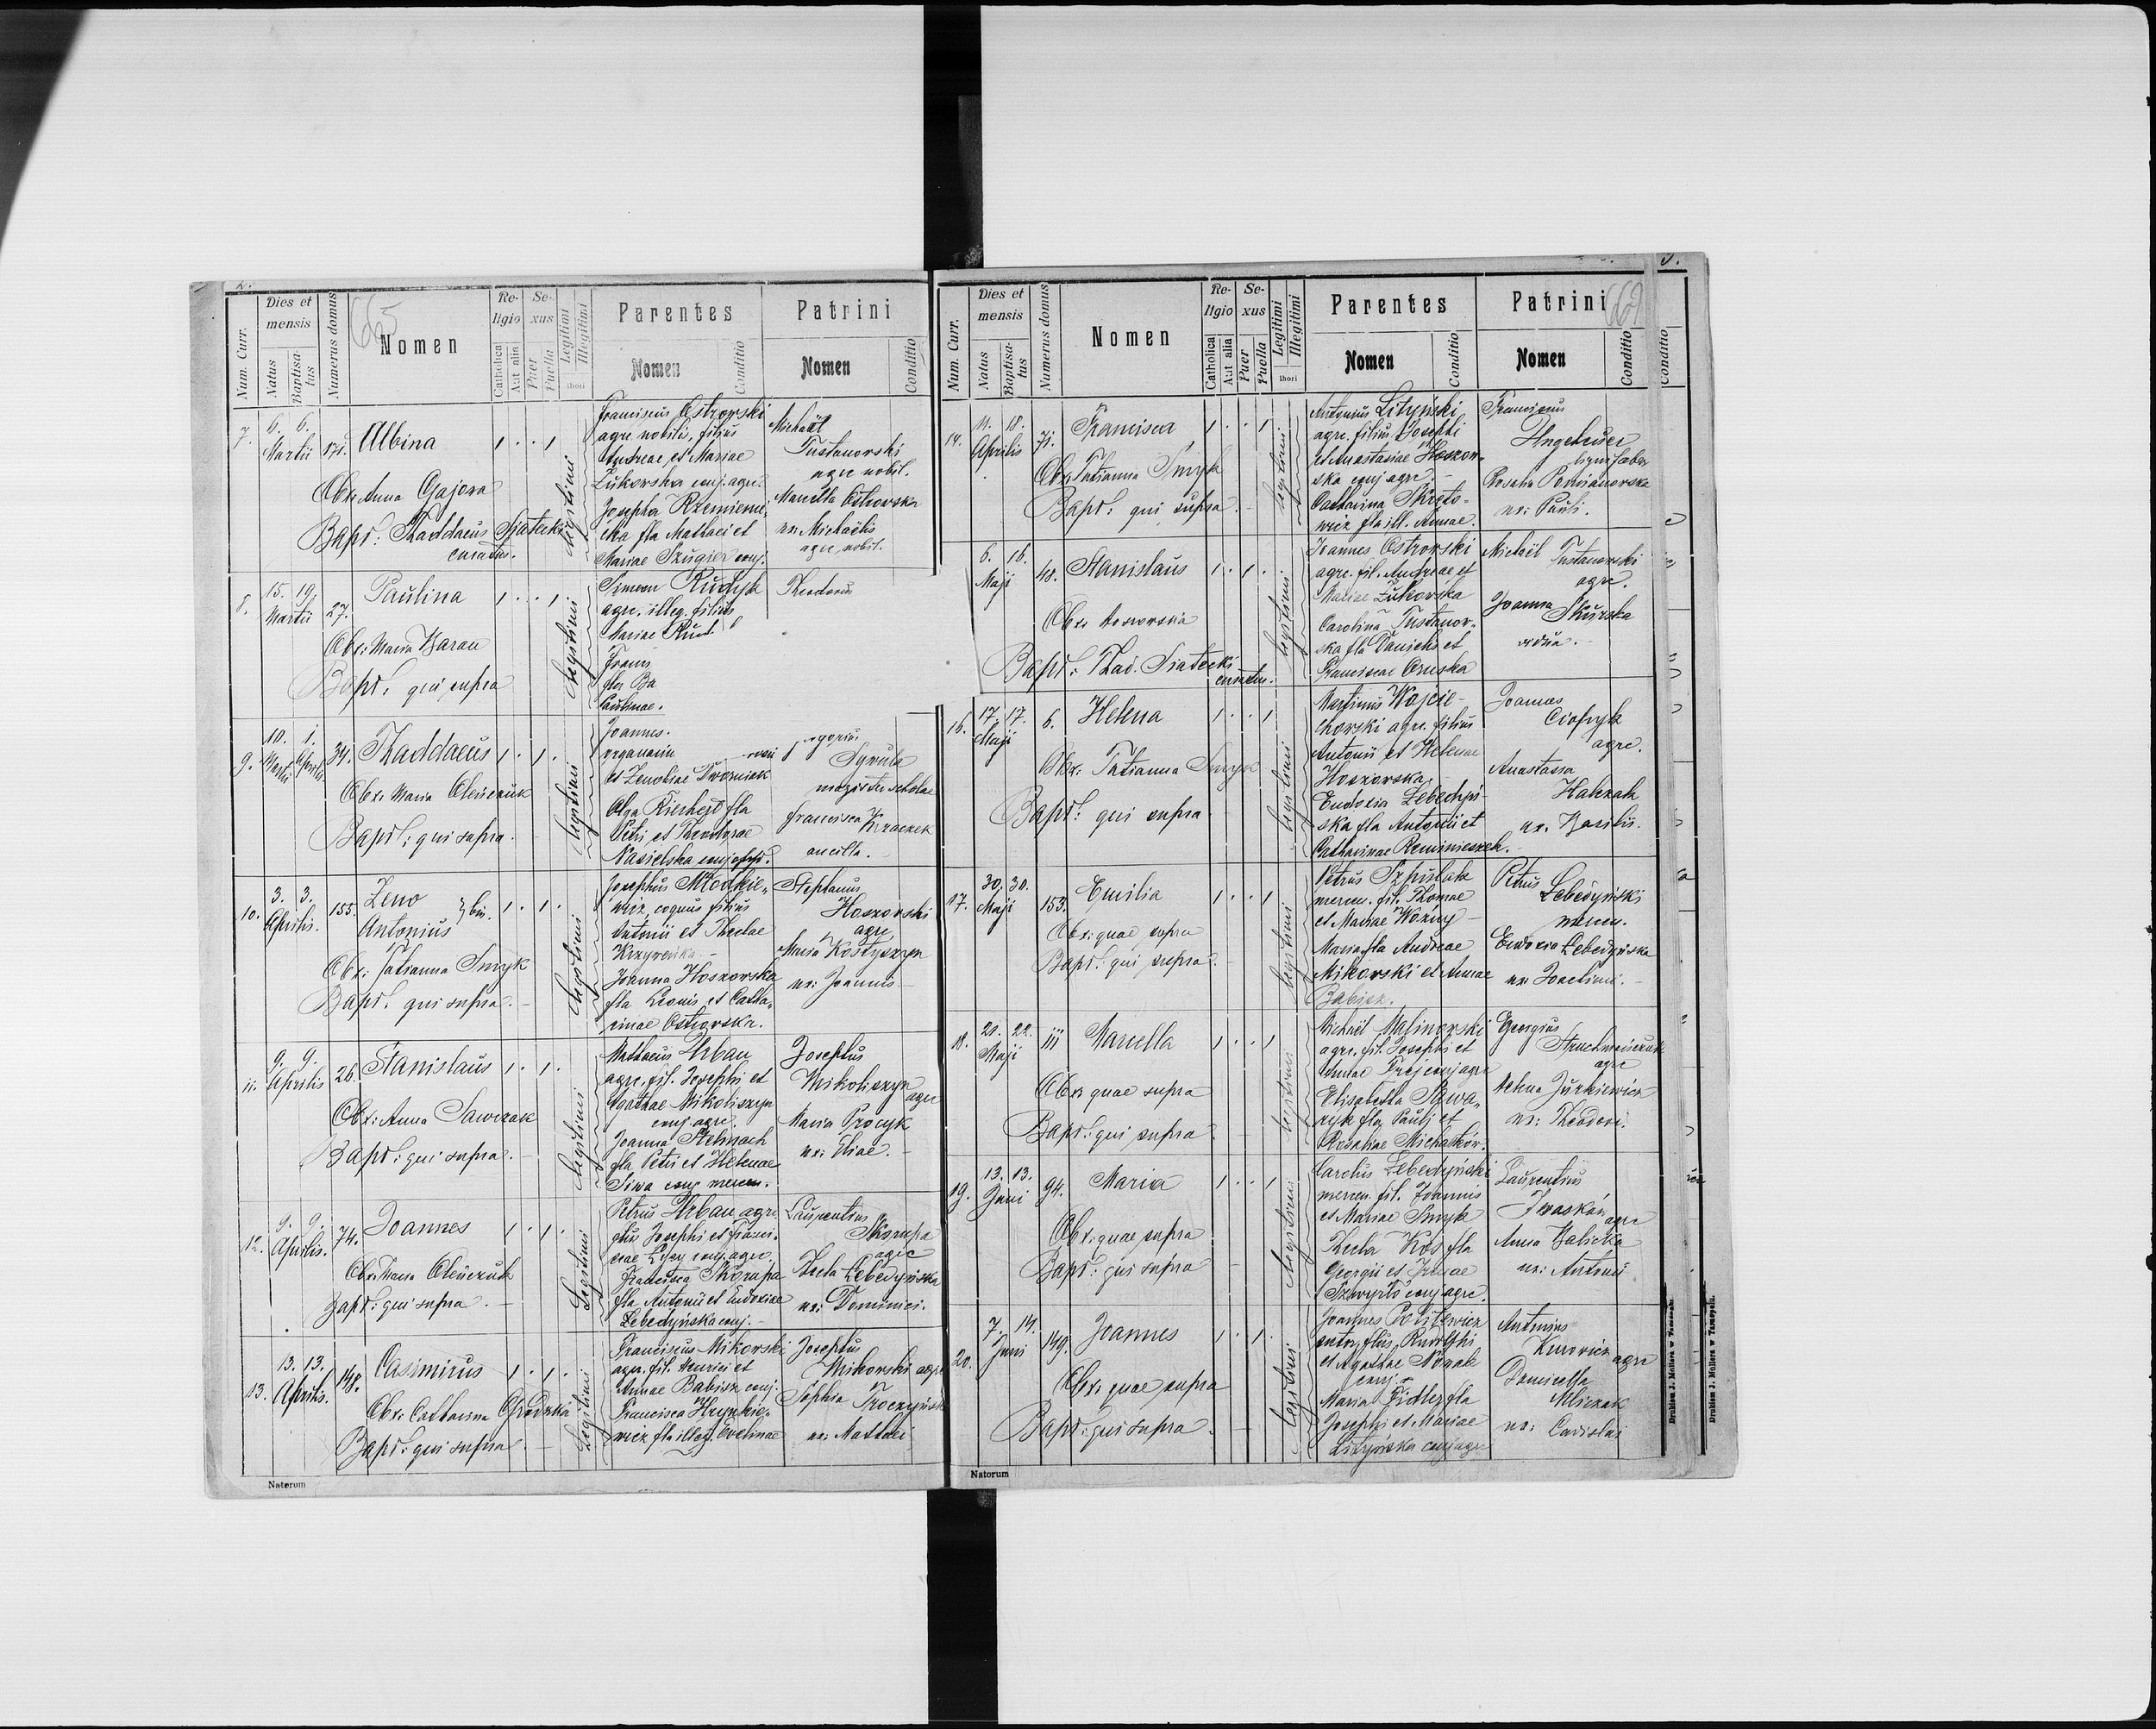 2.
665
Num. Curr.
Dies et mensis
Natus
Baptisatus
Numerus domus
Nomen
Religio
Catholica
Aut alia
Sexus
Puer
Puella
Legitimi
Illegitimi
thori
Parentes
Nomen
Conditio
Patrini
Nomen
Conditio
7.
6. 6.
Martii
171.
Albina
1 . . 1
Obx. Anna Gajova
Bapt: Thaddaeus Sjatecki
curatus.
legitimi
Franciscus Ostrowski
agr. nobilis, filius
Andreae et Mariae
Żukowska conj. agr.
Josepha Rzemienie
cka fla Mathaei et
Mariae Szugiel conj.
Michaël
Tustanowski
agr. nobil.
Marcella Ostrowska
ux: Michaëlis
agr. nobil.
8.
15. 19.
Martii
27.
Paulina
1 . . 1
Obx: Maria Baran
Bapt: qui supra
legitimi
Simeon Rudyk
agr. illeg. filius
Mariae Rud
Franc
fla Ba
Paulinae.
Theodorus
9.
10. 1.
Martii Aprilis
34.
Thaddaeus
1 . 1 .
Obx: Maria Oleńczuk
Bapt: qui supra.
legitimi
Joannes
organarius
et Zenobiae Dworniček
Olga Kierhejt fla
Petri et Theodorae
Nasielska conj.
Syrula
magister scholae
Francisca Krzaczek
ancilla.
10.
3. 3.
Aprilis.
155.
Zeno
Antonius } bin.
1 . 1 .
Obx: Tatianna Smyk
Bapt. qui supra.
legitimi
Josephus Młodkie„
wicz, coquus filius
Antonii et Theclae
Joanna Hoszowska
fla Leonis et Catha„
rinae Ostrowska.
Stephanus
Hoszowski
agr.
Maria Kostyszyn
ux: Joannis
11.
9. 9.
Aprilis
26.
Stanislaus
1 . 1 .
Obx: Anna Sawczak
Bapt: qui supra.
legitimi
Mathaeus Urban
agr. fil. Josephi et
Agathae Mikoliszyn
conj. agr.
Joanna Stelmach
fla Petri et Helenae
Siwa conj mercen.
Josephus
Mikoliszyn
agr
Maria Procyk
ux: Eliae.
12.
9. 9.
Aprilis.
74.
Joannes
1 . 1 .
Obx: Maria Oleńczuk
Bapt: qui supra.
Legitimi
Petrus Urban agr.
filius Josephi et Franci.
scae Lysy conj. agr.
Francisca Skorupa
fla Antonii et Eudoxiae
Lebedyńska conj.
Laurentius
Skorupa
agr
Thecla Lebedyńska
ux: Dominici.
13.
13. 13.
Aprilis.
148.
Casimirus
1 . 1 .
Obx: Catharina Grodzka
Bapt: qui supra
Legitimi
Franciscus Mikowski
agr. fil. Henrici et
Annae Babisz conj.
Francisca Hrynkie„
wicz fla illeg. Evelinae
Josephus
Mikowski agr
Sophia Troczyńsk
ux: Mathaei
Natorum
3.
669
Num. Curr.
Dies et mensis
Natus
Baptisatus
Numerus domus
Nomen
Religio
Catholica
Aut alia
Sexus
Puer
Puella
Legitimi
Illegitimi
thori
Parentes
Nomen
Conditio
Patrini
Nomen
Conditio
Conditio
14.
11. 18.
Aprilis
71.
Francisca
1 . . 1
Obx: Tatianna Smyk
Bapt: qui supra.
legitimi
Antonius Lityński
agr. filius Josephi
et Anastasiae Hoszow„
ska conj agr.
Catharina Skręto-
wicz fla ill. Annae.
Franciscus
Ungeheuer
lignifaber
ux: Pauli.
6. 16.
Maji
48.
Stanislaus
1 . 1 .
Obx: Hoszowska
Bapt: Thad. Siatecki
curatus.
legitimi
Joannes Ostrowski
agr. fil. Andreae et
Mariae Żukowska
Carolina Tustanow„
ska fla Danielis et
Franciscae Gruska
Michaël
Tustanowski
agr.
Joanna Skurska
vidua.
16.
17. 17.
Maji
6.
Helena
1 . . 1
Obx: Tatianna Smyk
Bapt: qui supra
legitimi
Martinus Wojcie-
chowski agr. filius
Antonii et Helenae
Hoszowska
Eudoxia Lebedyń-
ska fla Antonii et
Catharinae Reminieszek.
Joannes
Ciofryk
agr.
Anastasia
Halczak
ux. Basilii.
17.
30. 30.
Maji
153.
Emilia
1 . . 1
Obx: quae supra
Bapt. qui supra.
legitimi
Petrus Szpislak
mercen. fil. Thomae
et Mariae Woźny
Maria fla Andreae
Mikowski et Annae
Babisz.
Petrus
Lebedyński
mercen.
Eudoxia Lebedyńska
ux: Joachimi.
18.
20. 22.
Maji
111
Marcella
1 . . 1
Obx: quae supra
Bapt: qui supra.
legitimi
Michaël Malinowski
agr. fil. Josephi et
Annae Frej conj agr
Elisabetha Sawa„
ryk fla Pauli et
Rosaliae Michałków.
Georgius
agr
Helena Jurkiewicz
ux: Theodori.
19.
13. 13.
Juni
94.
Maria
1 . . 1
Obx: quae supra
Bapt: qui supra
legitimi
Carolus Lebedyński
mercen. fil. Joannis
et Mariae Smyk
Thecla Kos fla
Georgii et Irenae
Szwyrło conj agr.
Laurentius
Iwasków
agr
Anna Balicka
ux: Antonii
20.
7. 14.
Juni
149.
Joannes
1 . 1 .
Obx: quae supra
Bapt: qui supra.
legitimi
Joannes
sutor, filius Rudolphi
et Agathae Nowak
conj.
Maria Fidler fla
Josephi et Mariae
Lityńska conj agr
Antonius
Kurowicz
agr
Domicella
Mliczak
ux: Ladislai
Natorum
Drukiem J. Mollera w Tarnopolu.
Drukiem J. Mollera w Tarnopolu.